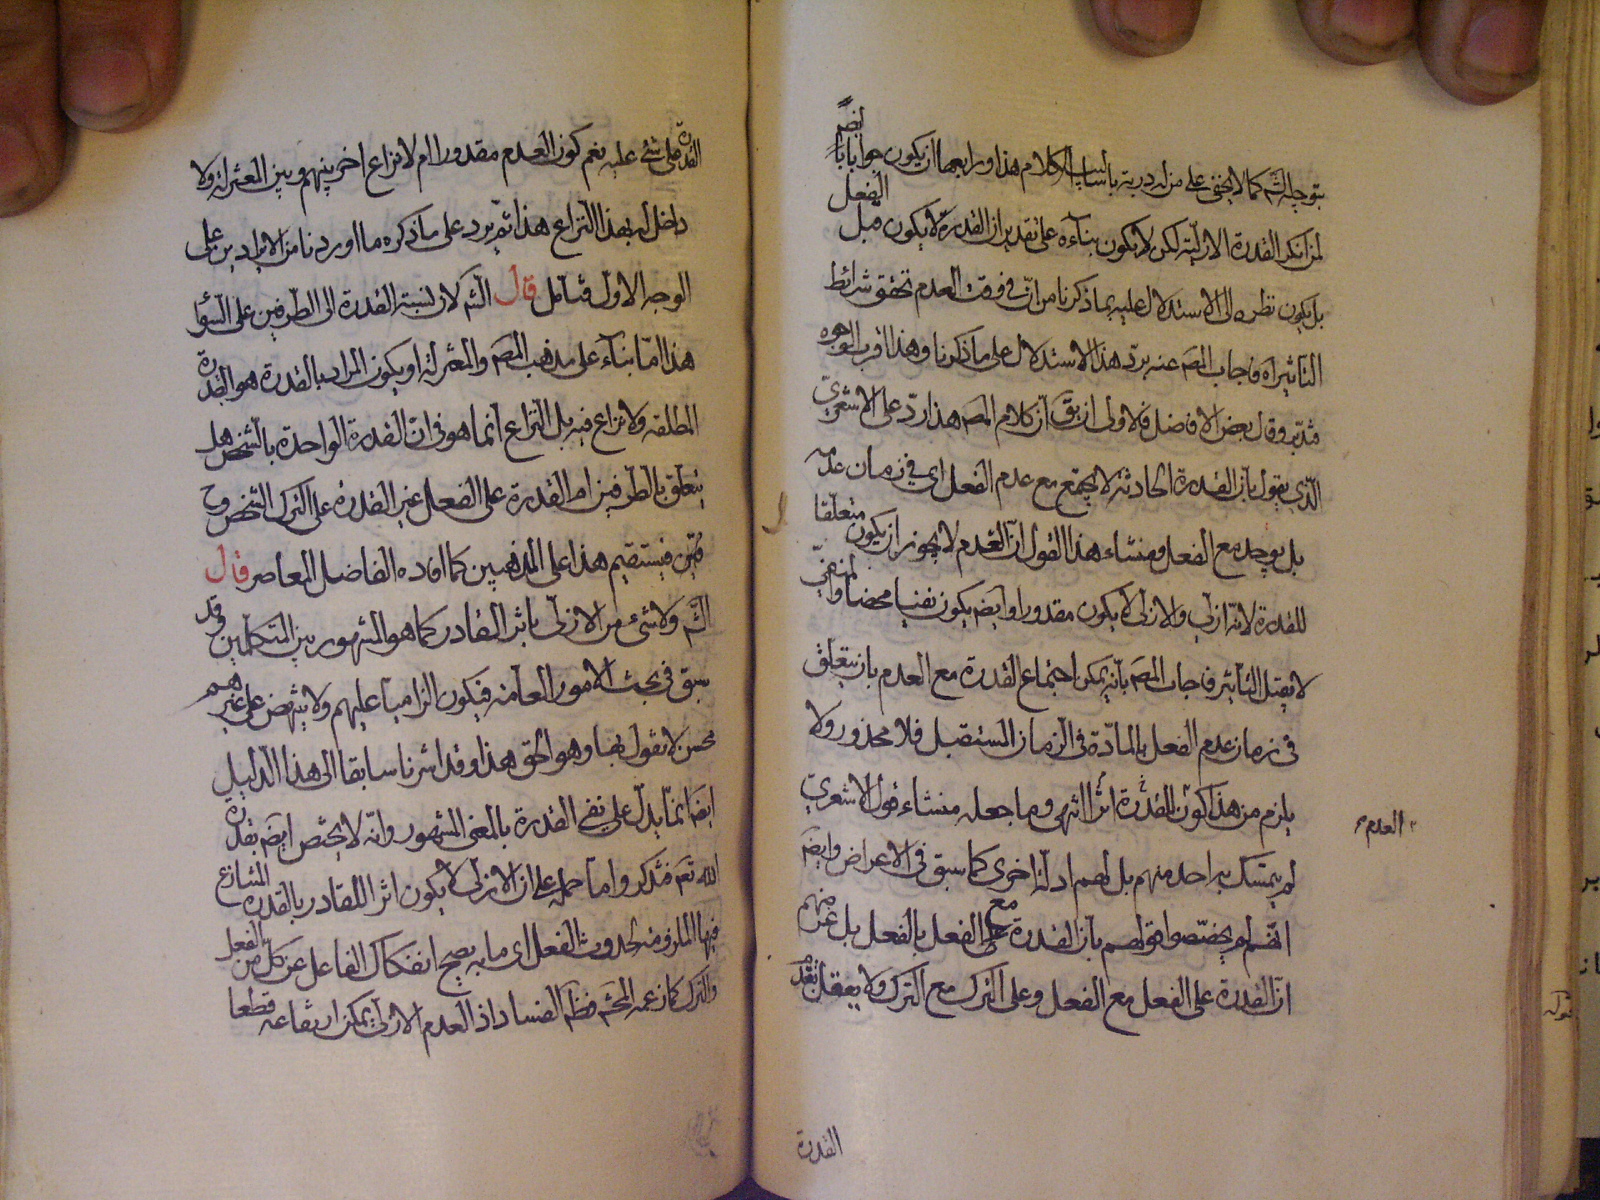 يتوجه الشم كما لا يخفى على من له دربة باساليب الكلام هذا ورابعها ان يكون جوابا ايضم
لمن انكر القدرة الازلية لكن لا يكون بناءه على تقدير ان القدرة لا يكون قبل الفعل
بل يكون نظره الى الاستدلال عليه بما ذكرنا من ان في وقت العدم تحقق شرائط
التأثير اه فاجاب المصم عنه برد هذا الاستدلال على ما ذكرنا وهذا اقرب الوجوه
فتدبر وقال بعض الافاضل فالاولى ان يق ان كلام المصم هذا رد على الاشعري
الذي يقول بان القدرة الحادثة لا يجتمع مع عدم الفعل اي في زمان عدمه
بل يوجد مع الفعل ومنشاء هذا القول ان العدم لا يجوز ان يكون متعلقا
للقدرة لانه ازلي والازلي لا يكون مقدورا وايضم يكون نفيا محضا والنفي
لا يقبل التأثير فاجاب المصم بانه يمكن اجتماع القدرة مع العدم بان يتعلق
في زمان عدم الفعل بالمادة في الزمان المستقبل فلا محذور ولا
يلزم من هذا كون القدرة اثرا انتهى وما جعله منشاء قول الاشعري
العدم
لم يتمسك به احد منهم بل لهم ادلة اخرى كما سبق في الاعراض وايضم
انهم لم يخصصوا قولهم بان القدرة على الفعل مع الفعل بل عندهم
ان القدرة على الفعل مع الفعل وعلى الترك مع الترك ولا يعقل تقدم
القدرة
القدرة على شئ عليه نعم كون العدم مقدورا ام لا نزاع اخر بينهم وبين المعتزلة ولا
داخل له بهذا النزاع هذا ثم يرد على ما ذكره ما اوردنا من الايراد ين على
الوجه الاول فتامل قال الشم لان نسبة القدرة الى الطرفين على السواء
هذا اما بناء على مذهب المصم والمعتزلة او يكون المراد بالقدرة هو القدرة
المطلقه ولا نزاع فيه بل النزاع انما هو في ان القدرة الواحدة بالشخص هل
يتعلق بالطرفين ام القدرة على الفعل غير القدرة على الترك الشخص وح
فيستقيم هذا على المذهبين كما افاده الفاضل المعاصر قال
الشم ولا شئ من الازلي باثر القادر كما هو المشهور بين المتكلمين وقد
سبق في بحث الامور العامة فيكون الزاميا عليهم ولا ينهض على غيرهم
نحن لا نقول بها وهو الحق هذا وقد اشرنا سابقا الى هذا الدليل
ايضا انما يدل على نفى القدرة بالمعنى المشهور وانه لا يختص ايضم بقدرة
الله تعم فتذكر واما حمله على ان الازلي لا يكون اثرا للقادر بالقدرة المتنازع
فيها الملزومة لحدوث الفعل اي ما به يصح انفكاك الفاعل عن كل من الفعل
والترك كما زعمه المحشم فظم الفساد اذ العدم الازلي يمكن ارتفاعه قطعا